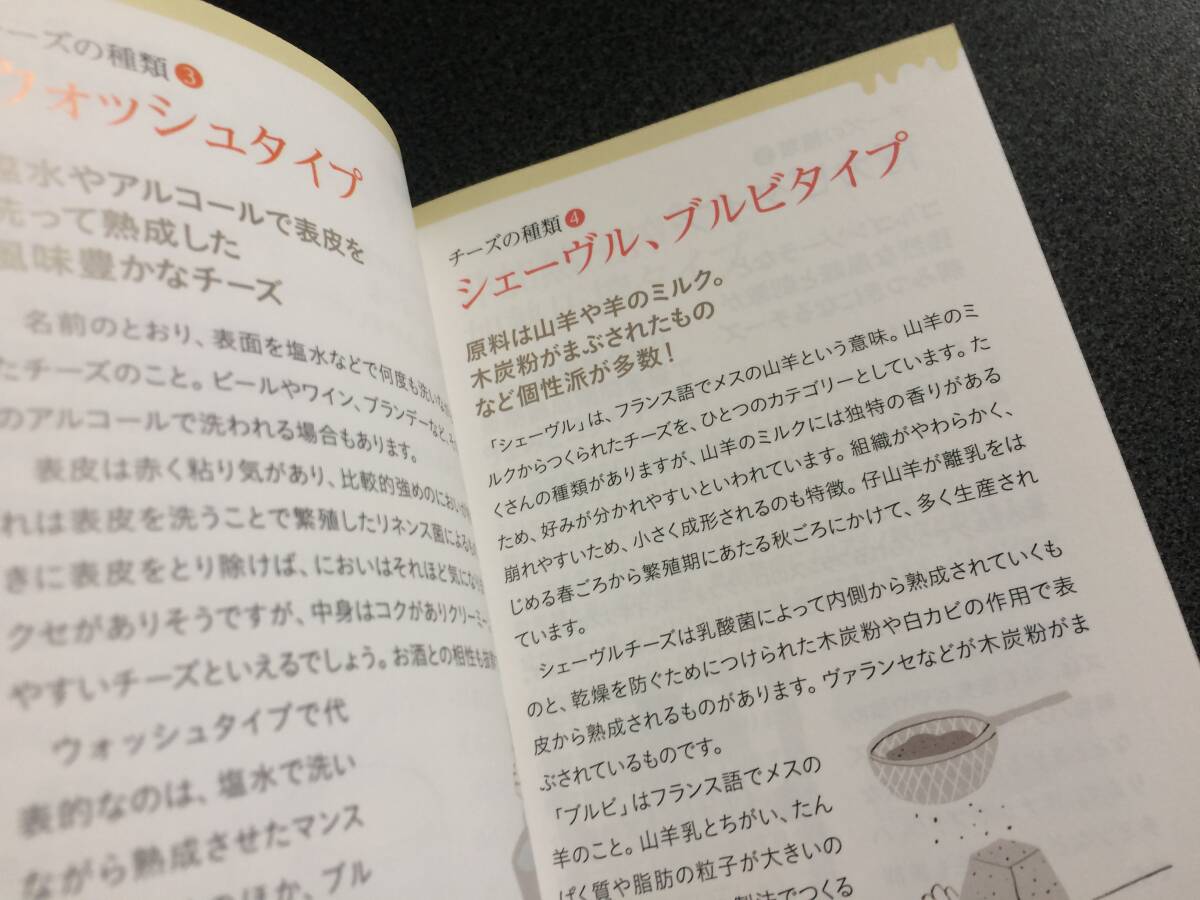 ーズの種類❸
ウォッシュタイプ
塩水やアルコールで表皮を
洗って熟成した
風味豊かなチーズ
名前のとおり、表面を塩水などで何度も洗い
たチーズのこと。ビールやワイン、ブランデーなど、
のアルコールで洗われる場合もあります。
表皮は赤く粘り気があり、比較的強めのにおい
れは表皮を洗うことで繁殖したリネンス菌によるも
きに表皮をとり除けば、においはそれほど気になり
クセがありそうですが、中身はコクがありクリーミー
やすいチーズといえるでしょう。お酒との相性も
ウォッシュタイプで代
表的なのは、塩水で洗い
ながら熟成させたマンス
のほか、ブル
チーズの種類❹
シェーヴル、ブルビタイプ
原料は山羊や羊のミルク。
木炭粉がまぶされたもの
など個性派が多数！
「シェーヴル」は、フランス語でメスの山羊という意味。山羊のミ
ルクからつくられたチーズを、ひとつのカテゴリーとしています。た
くさんの種類がありますが、山羊のミルクには独特の香りがある
ため、好みが分かれやすいといわれています。組織がやわらかく、
崩れやすいため、小さく成形されるのも特徴。仔山羊が離乳をは
じめる春ごろから繁殖期にあたる秋ごろにかけて、多く生産され
ています。
シェーヴルチーズは乳酸菌によって内側から熟成されていくも
のと、乾燥を防ぐためにつけられた木炭粉や白カビの作用で表
皮から熟成されるものがあります。ヴァランセなどが木炭粉がま
ぶされているものです。
「ブルビ」はフランス語でメスの
羊のこと。山羊乳とちがい、たん
ぱく質や脂肪の粒子が大きいの
製法でつくる